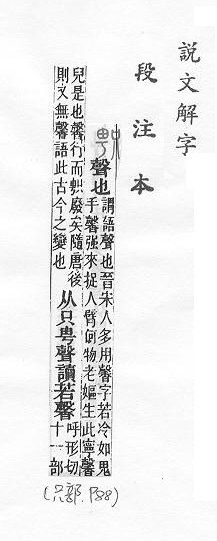 說文解字
段注本
聲也
謂語聲也晉宋人多用馨字若冷如鬼
手馨強來捉人臂何物老嫗生此寧馨
兒是也馨行而廢矣隨唐後
則又無馨語此古今之變也
从只甹聲讀若馨
呼形切
十一部
(只部. P88)